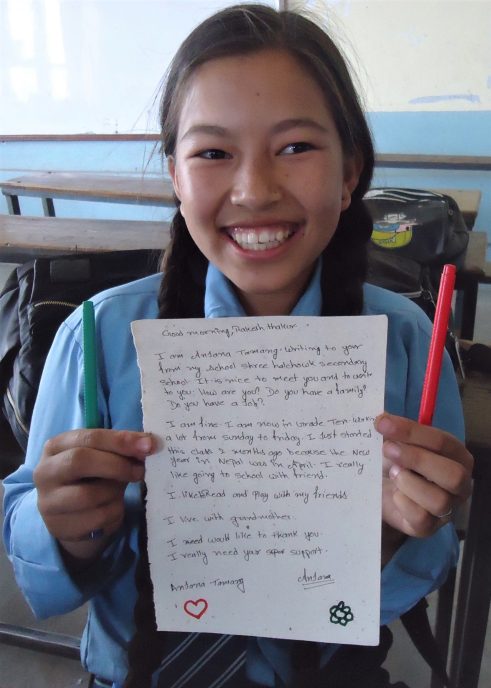 Good morning, Rakesh thakur
I am Antara Tamang. Writing to your
from my school shree halchowk secondary
school. It is nice to meet you and to write
to you. How are you? Do you have a family?
Do you have a Job?
I am fine. I am now in Grade Ten. Work
a lot from Sunday to friday. I Just started
this class 2 months ago because the New
year in Nepal was in April. I really
like going to school with friend.
I like Read and Play with my friends
I live with grandmother.
I need would like to thank you
I really need your support.
Antara Tamang Antara